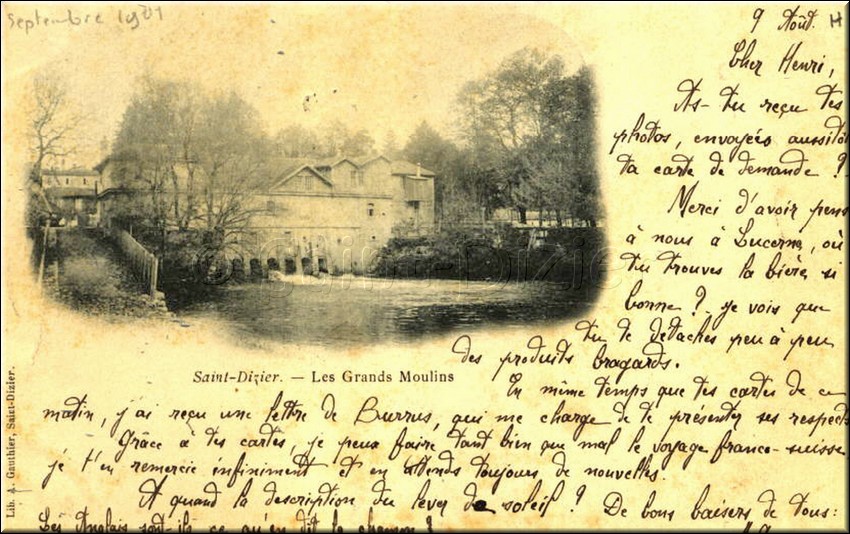 Septembre 1901
9 Août. H
Cher Henri,
As-tu reçu tes
photos, envoyées aussitôt
ta carte de demande ?
Merci d'avoir pens
à nous à Lucerne, où
tu trouves la bière si
bonne ? je vois que
tu te détaches peu à peu
des produits bragards.
En même temps que tes cartes de ce
matin, j'ai reçu une lettre de Burrus, qui me charge de te présenter ses respects
Grâce à tes cartes, je peux faire tant bien que mal le voyage franco-suisse
je t'en remercie infiniment et en attends toujours de nouvelles.
A quand la description du lever de soleil ? De bons baisers de tous:
Les Anglais sont-ils ce qu'en dit la chanson ?
Saint-Dizier. — Les Grands Moulins
Lib. A. Gauthier, Saint-Dizier.
© Saint-Dizie